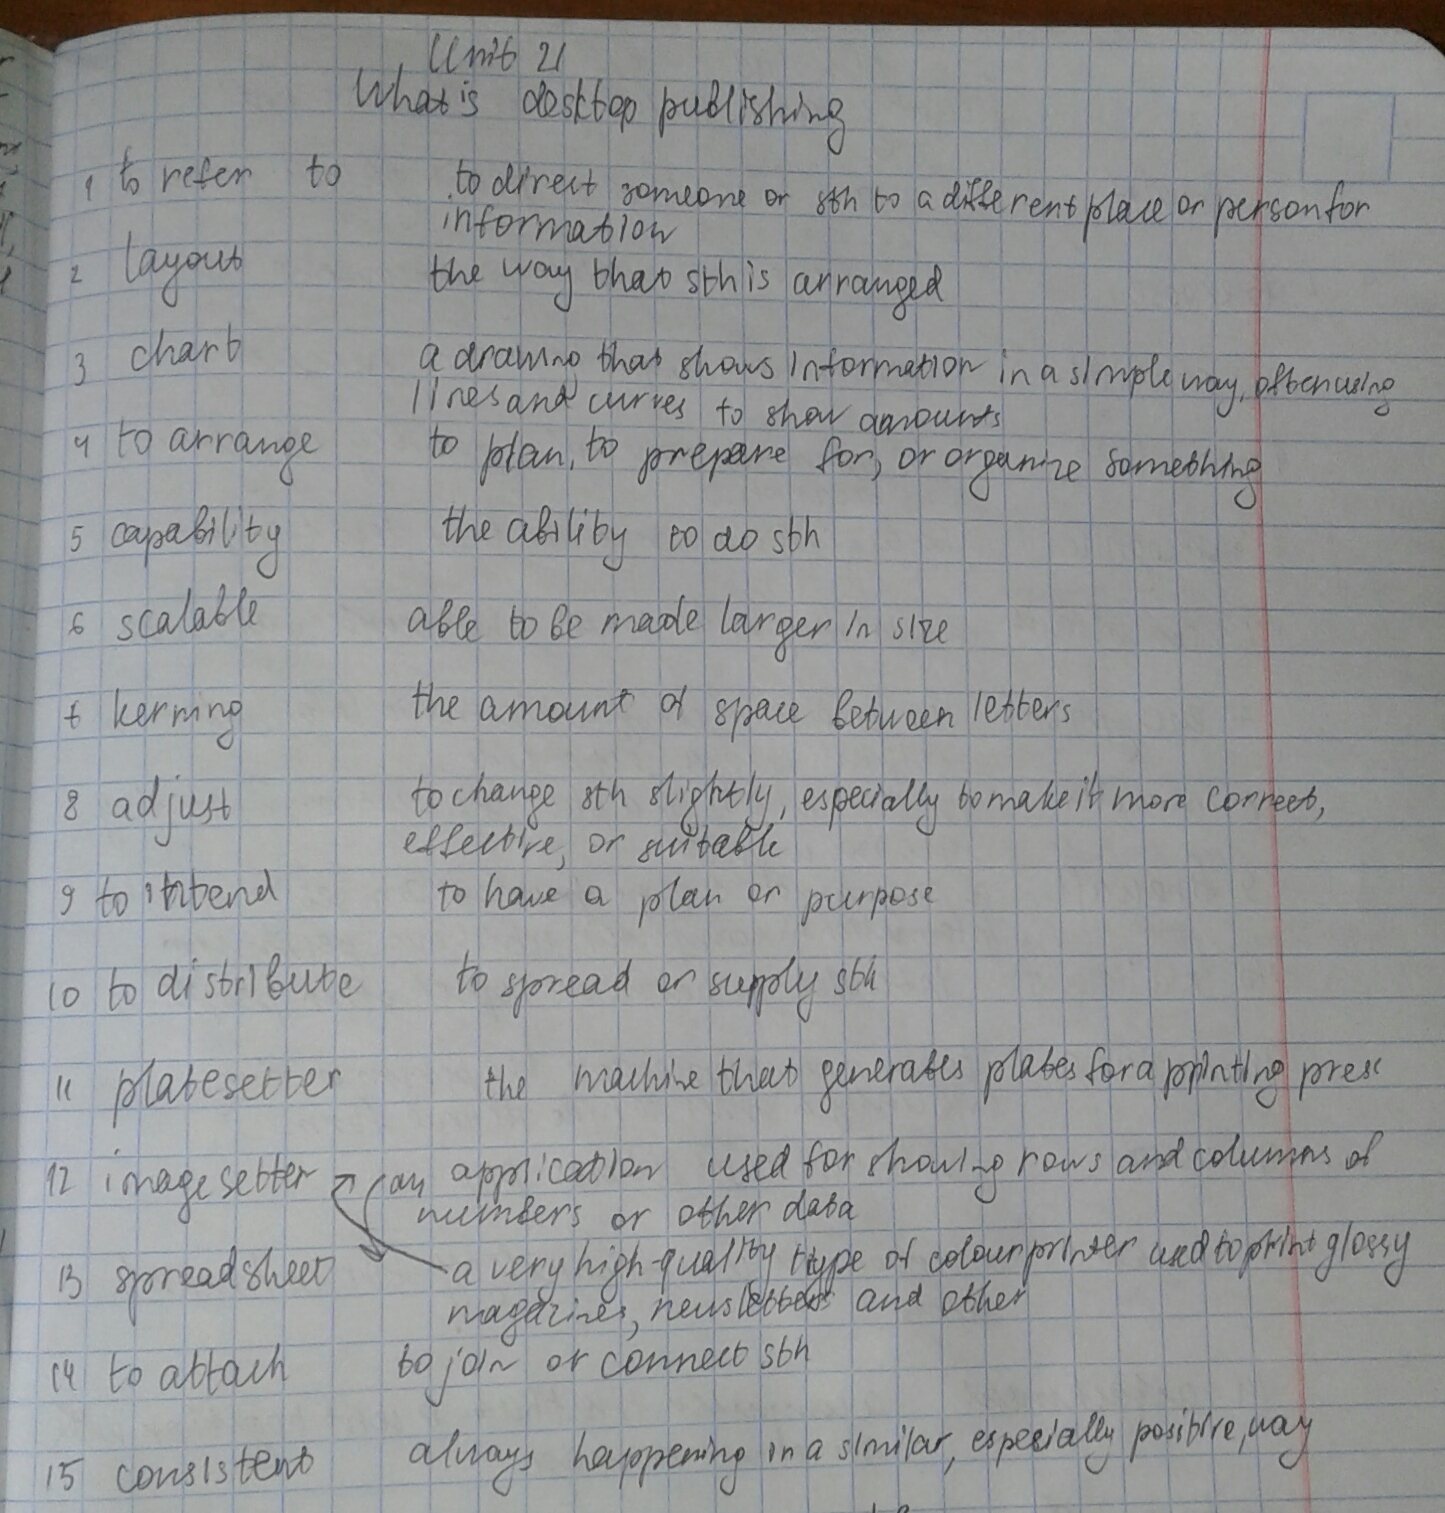 Unit 21
What is desktop publishing
1 to refer to to direct someone or sth to a different place or person for
information
2 layout the way that sth is arranged
3 chart a drawing that shows information in a simple way, often using
lines and curves to show amounts
4 to arrange to plan, to prepare for, or organize something
5 capability the ability to do sth
6 scalable able to be made larger in size
7 kerning the amount of space between letters
8 adjust to change sth slightly, especially to make it more correct,
effective, or suitable
9 to intend to have a plan or purpose
10 to distribute to spread or supply sth
11 platesetter the machine that generates plates for a printing press
12 imagesetter an application used for showing rows and columns of
numbers or other data
13 spreadsheet a very high-quality type of colour printer used to print glossy
magazines, newsletters and other
14 to attach to join or connect sth
15 consistent always happening in a similar, especially positive, way